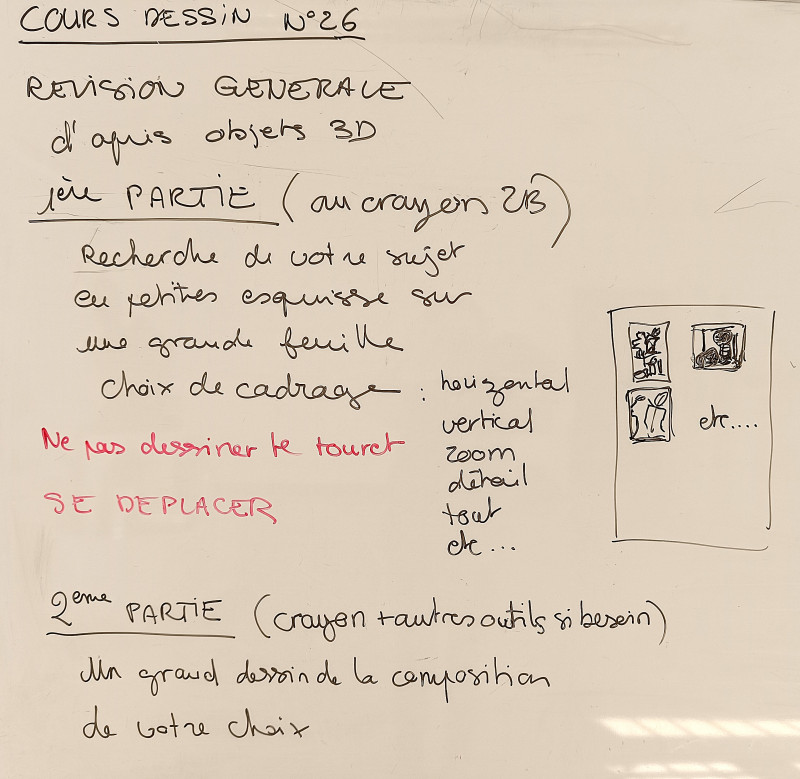 COURS DESSIN N°26
REVISION GENERALE
d'après objets 3D
1ère PARTIE (au crayons 2B)
Recherche de votre sujet
en petites esquisse sur
une grande feuille
choix de cadrage : horizontal
vertical
zoom
détail
tout
etc...
etc....
Ne pas dessiner le touret
SE DEPLACER
2eme PARTIE (crayon + autres outils si besoin)
Un grand dessin de la composition
de votre choix